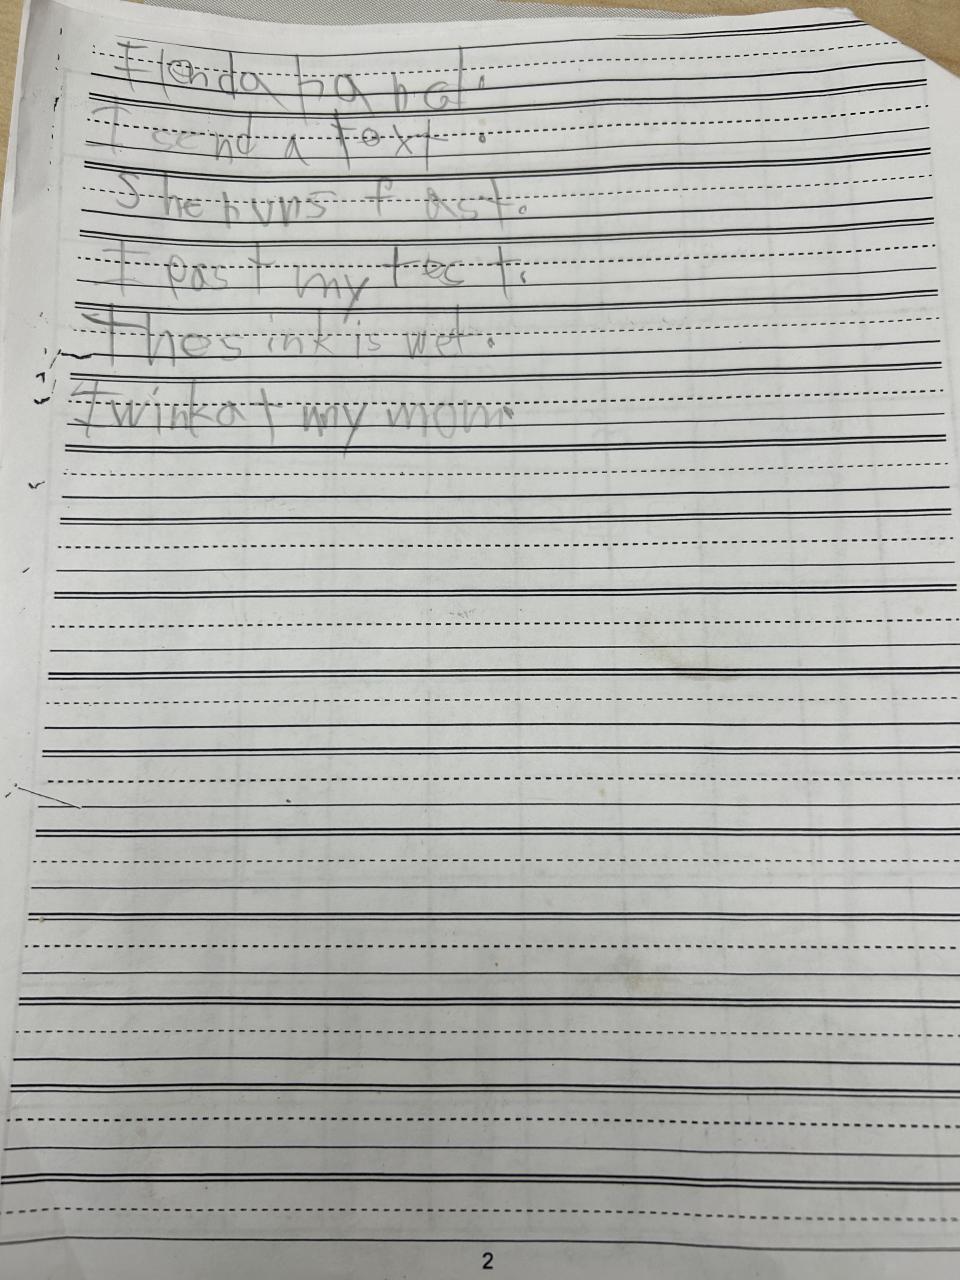 I lend a ha hat.
I send a text.
She runs fast.
I past my test.
The sink is wet.
I wink at my mom.
2